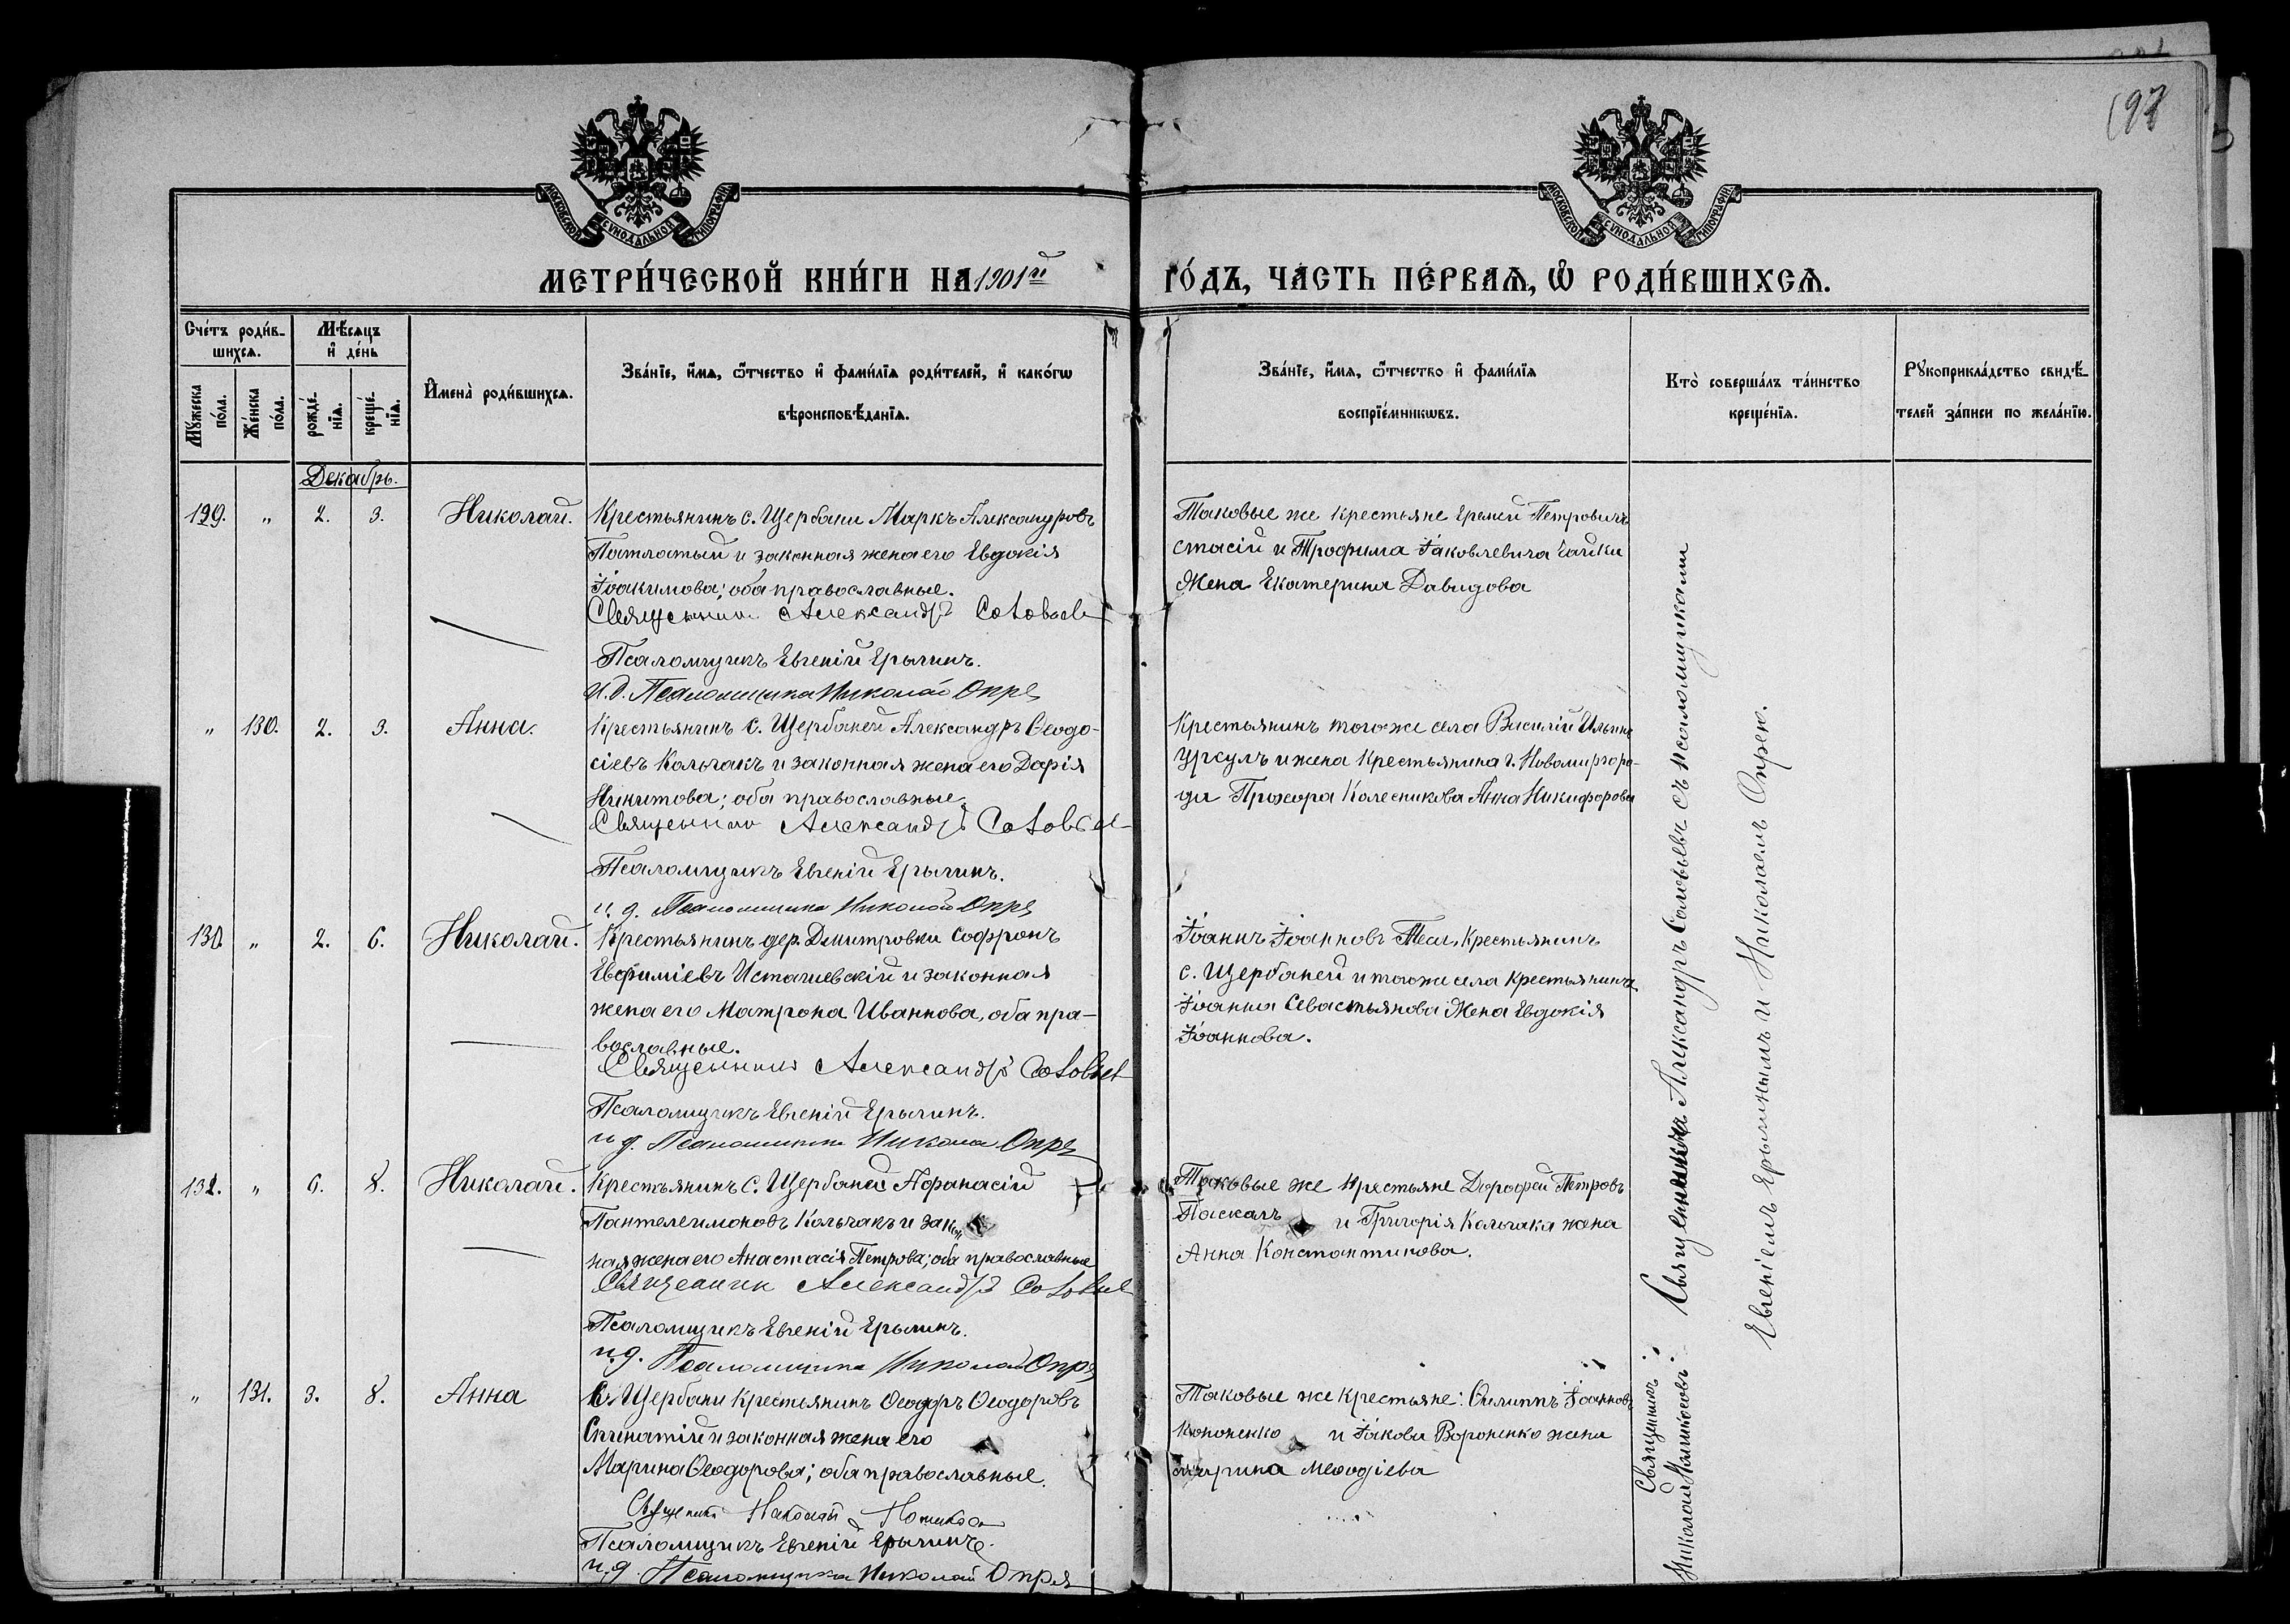 198
МОСКОВСКОЙ СѴНОДАЛЬНОЙ ТИПОГРАФІИ
МОСКОВСКОЙ СѴНОДАЛЬНОЙ ТИПОГРАФІИ
МЕТРИ́ЧЕСКОЙ КНИ́ГИ НА 1901й ГО́ДЪ, ЧА́СТЬ ПЕ́РВАѦ, Ѡ РОДИ́ВШИХСѦ.
Сче́тъ роди́в-
шихсѧ.
Мѣ́сѧцъ
и де́нь
Мꙋ́жеска
по́ла.
Же́нска
по́ла.
рожде́-
нїѧ.
креще́-
нїѧ.
Имена̀ роди́вшихсѧ.
Зва́нїе, и́мѧ, ѻ́тчество и фами́лїѧ роди́телей, и како́гѡ
вѣроисповѣ́данїѧ.
Зва́нїе, и́мѧ, ѻ́тчество и фами́лїѧ
воспрїе́мникѡвъ.
Кто̀ соверша́лъ та́инство
креще́нїѧ.
Рꙋкоприкла́дство свидѣ́-
телей за́писи по жела́нїю.
Декабрь.
129. „ 2. 3. Николай. Крестьянинъ с. Щербани Маркъ Александровъ
Патлатый и законная жена его Евдокія
Іоакимова; оба православные.
Священникъ Александръ Соловьевъ
Псаломщикъ Евгеній Ерылинъ.
И.д. Псаломщика Николай Опря
Таковые же крестьяне Еремей Петровичъ
стасій и Трофима Іаковлевича Чайки
Жена Екатерина Давидова
„ 130. 2. 3. Анна. Крестьянинъ с. Щербаней Александръ Ѳеодо-
сіевъ Кольчакъ и законная жена его Дарія
Никитова; оба православные.
Священникъ Александръ Соловьевъ
Псаломщикъ Евгеній Ерылинъ.
и. д. Псаломщика Николай Опря
Крестьянинъ тогоже села Василій Ильинъ
Урсулъ и жена Крестьянина г. Новомиргоро-
да Прохора Колесникова Анна Никифорова
130. „ 2. 6. Николай. Крестьянинъ дер. Дмитровки Софронъ
Евфиміевъ Исташевскій и законная
жена его Матрона Иваннова, оба пра-
вославные.
Священникъ Александръ Соловьевъ
Псаломщикъ Евгеній Ерылинъ.
и д. Псаломщика Николай Опря
Іоаннъ Іоанновъ Крестьянинъ
с. Щербаней и тогоже села крестьянина
Іоанна Севастьянова Жена Евдокія
Іоаннова.
131. „ 6. 8. Николай. Крестьянинъ с. Щербаней Афанасій
Пантелеимоновъ Кольчакъ и закон
ная жена его Анастасія Петрова; оба православные
Священникъ Александръ Соловьевъ
Псаломщикъ Евгеній Ерылинъ.
и.д. Псаломщика Николай Опря
Таковые же крестьяне Дорофей Петровъ
Паскалъ и Григорія Кольчака жена
Анна Константинова.
„ 131. 3. 8. Анна С. Щербани крестьянинъ Ѳеодоръ Ѳеодоровъ
и законная жена его
Марина Ѳеодорова; оба православные.
Священникъ Николай
Псаломщикъ Евгеній Ерылинъ.
и.д. Псаломщика Николай Опря
Таковые же крестьяне: Филиппъ Іоанновъ
Кононенко и Іакова Вороненко жена
Марина Меѳодіева
Священникъ Александръ Соловьевъ съ псаломщиками
Евгеніемъ Ерылинымъ и Николаемъ Опрею.
Священникъ
Николай